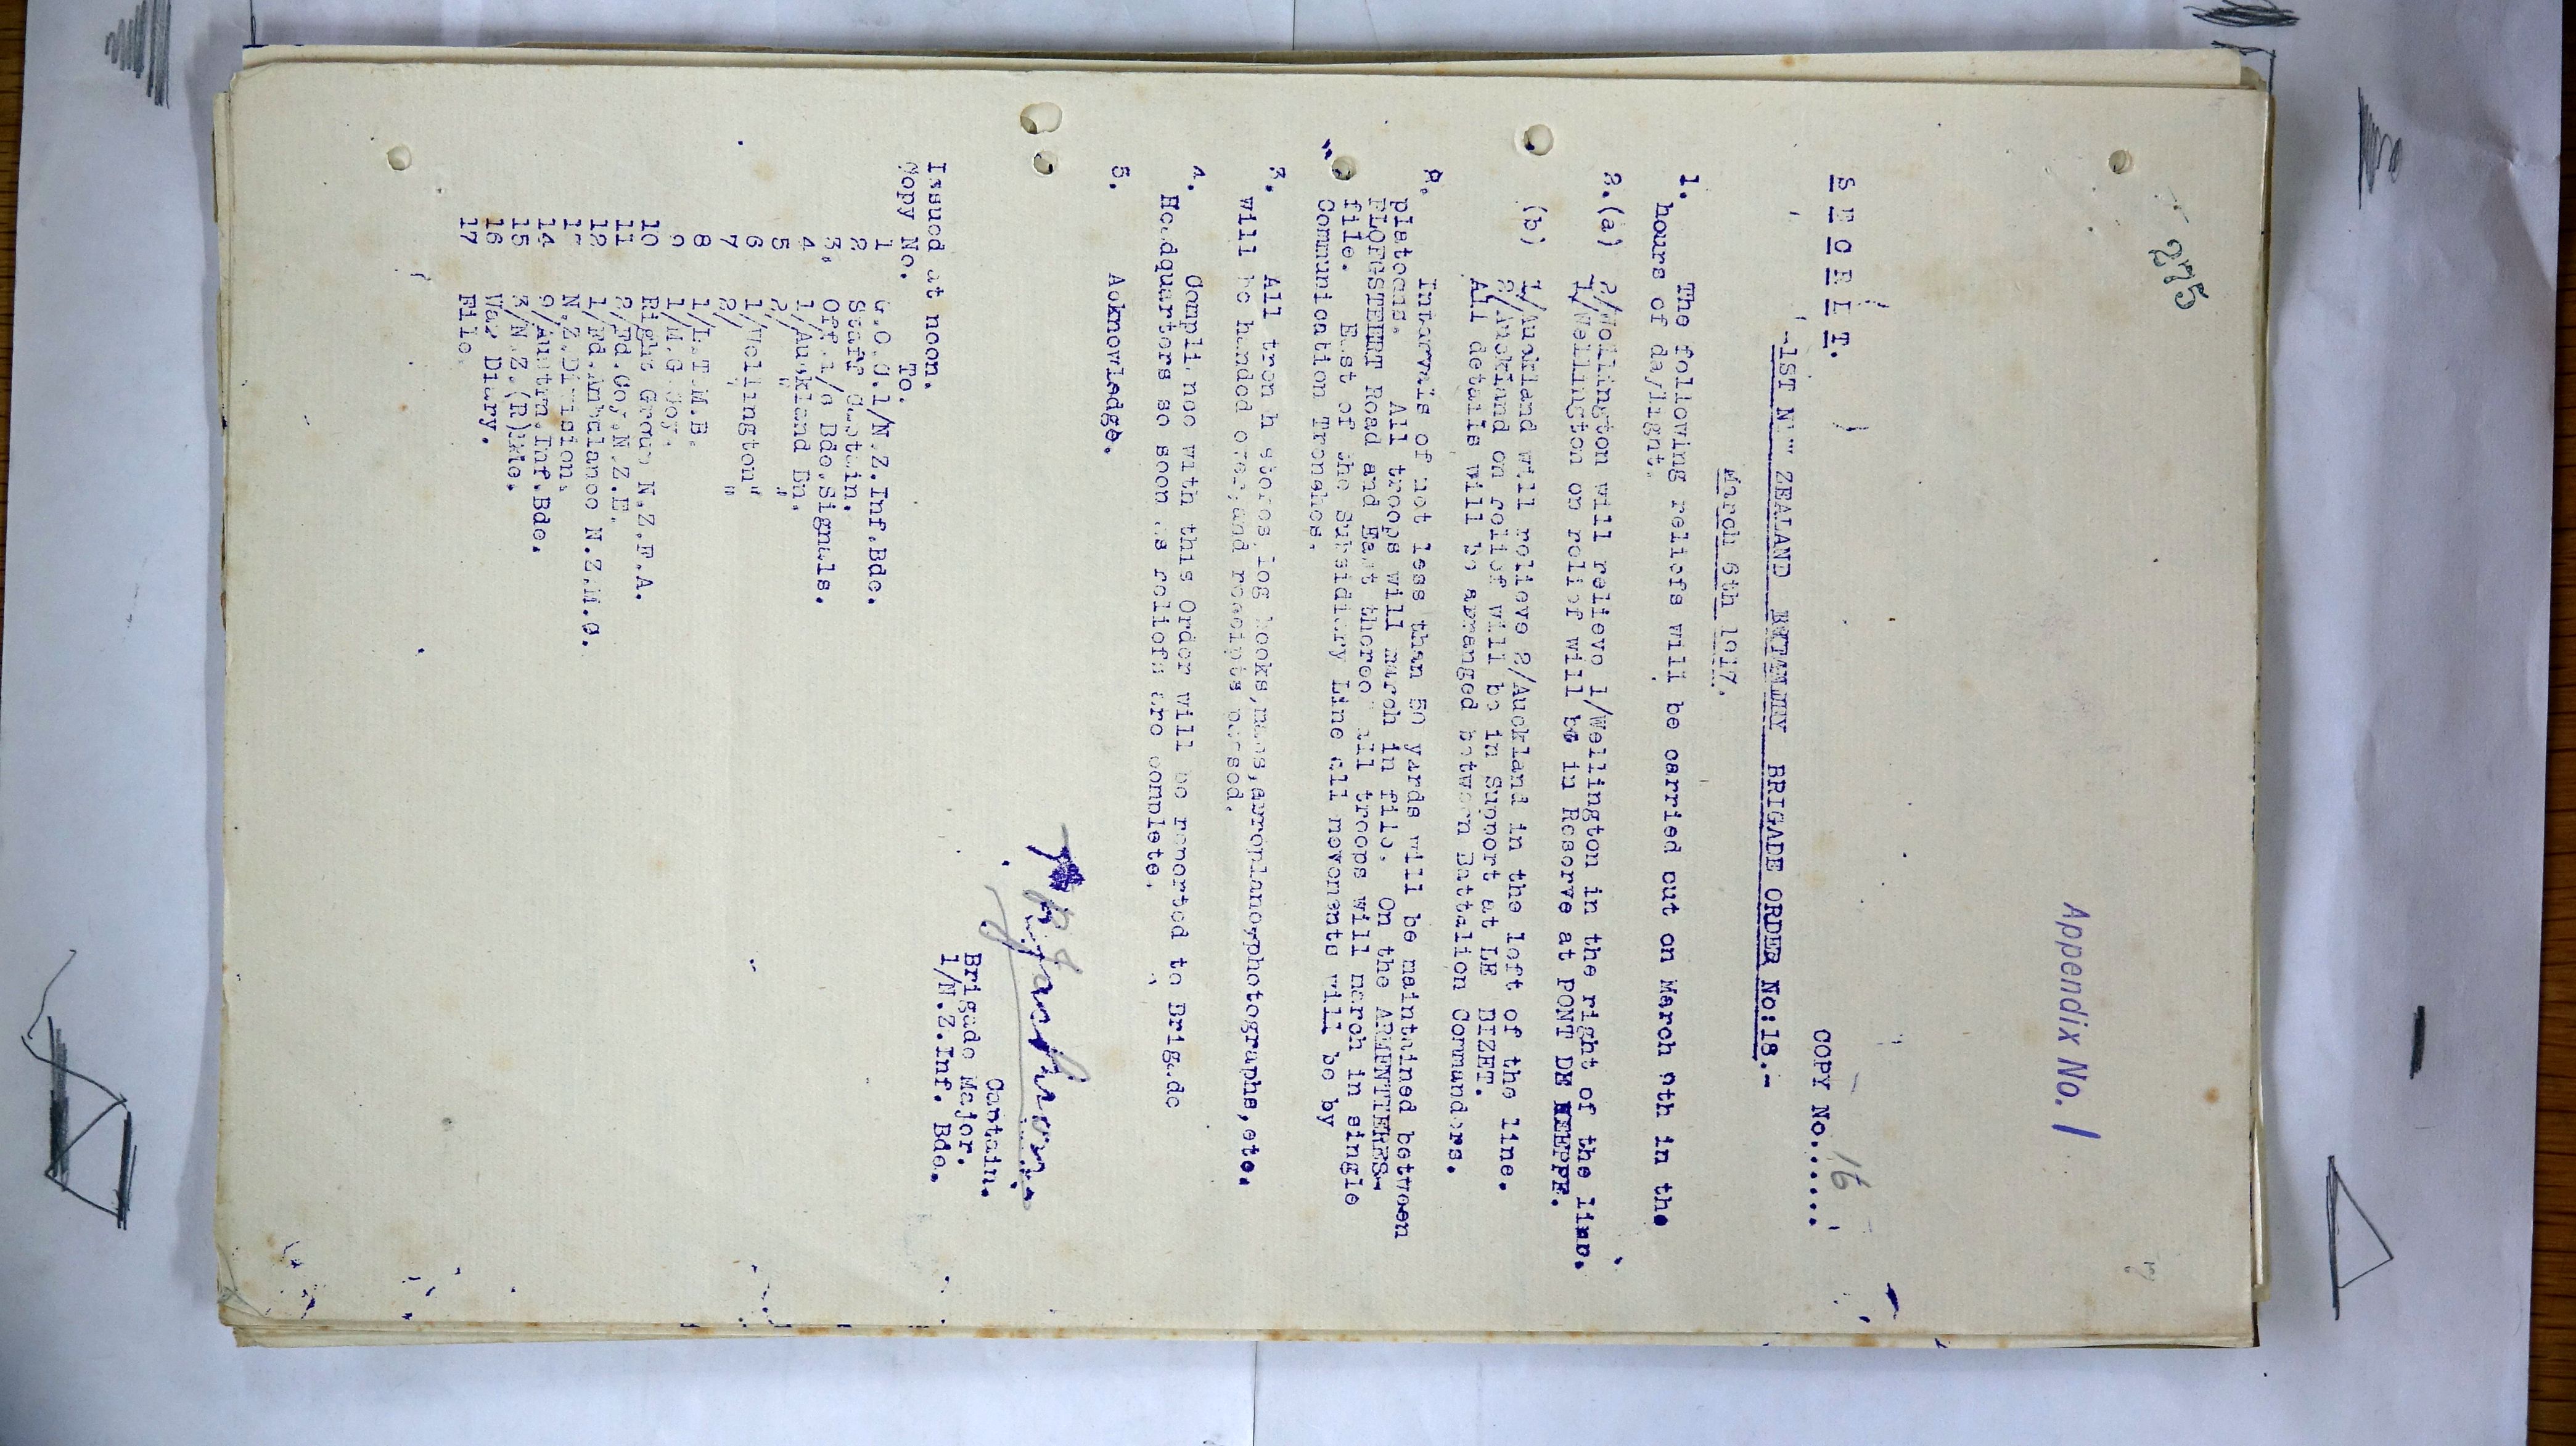 275
Appendix No. 1
S E C R E T.
COPY No....16...
1ST NEW ZEALAND INFANTRY BRIGADE ORDER No:18.-
March 6th 1917.
1. The following reliefs will be carried out on March in the
hours of daylight.
2.(a) 2/Wellington will relieve 1/Wellington in the right of the line.
1/Wellington on relief will be in Reserve at PONT DE NIEPPE.
(b) 1/Auckland will relieve 2/Auckland in the left of the line.
2/Auckland on relief will be in Support at LE BIZET.
All details will be arranged between Battalion Commanders.
Intervals of not less than 50 yards will be maintained between
platoons. All troops will march in file. On the ARMENTIERES-
PLOEGSTEERT Road and East thereof all troops will march in single
file. East of the Subsidiary Line all movements will be by
Communication Trenches.
3. All trench stores, log books, maps, aeroplane photographs, etc.
will be handed over, and receipts passed.
4. Compliance with this Order will be reported to Brigade
Headquarters so soon as reliefs are complete.
5. Acknowledge.
Captain.
Brigade Major.
1/N.Z.Inf. Bde.
Issued at noon.
Copy No. To.
1 G.O.C.1/N.Z.Inf.Bde.
2 Staff Captain.
3. Off.i/c Bde.Signals.
4 1/Auckland Bn.
5 2/ " "
6 1/Wellington "
7 2/ " "
8 1/L.T.M.B.
9 1/M.G.Coy.
10 Right Group N.Z.F.A.
11 2/Fd.Coy.N.Z.E.
12 1/Fd.Ambulance N.Z.M.C.
13 N.Z.Division.
14 9/Austrn.Inf.Bde.
15 3/N.Z.(R)Bde.
16 War Diary.
17 File.